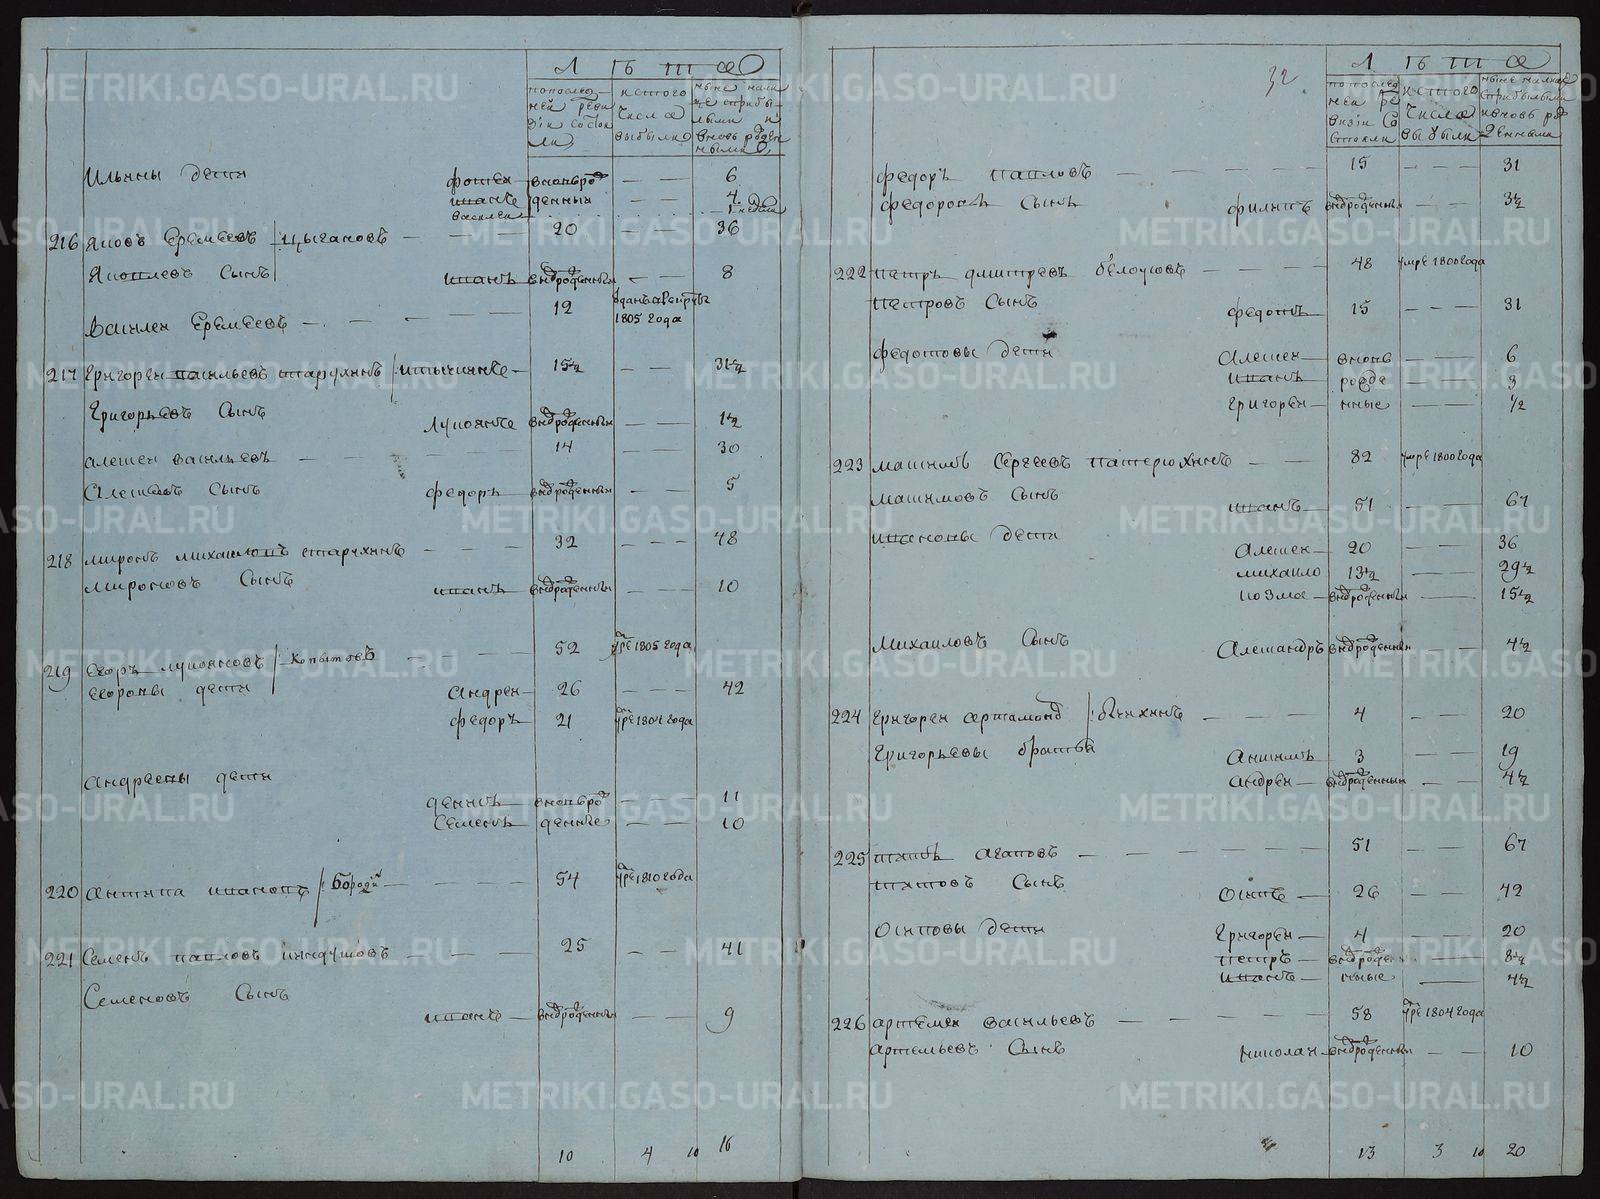 Лѣта
по послед-
ней реви
зіи состоя
ли
ис того
числа
выбыло
ныне нали
це с прибы-
лыми и
вновь рожден
ными
Ильины дети фотей вновьрож — — 6
иванъ денныя — — 4
василей 1 недели
216 Яковъ Еремеевъ /:цыгановъ — — 20 — — 36
Яковлевъ Сынъ иванъ вновьрожденныи — — 8
Василей Еремеевъ — — — — 12 Зданъ в рекруты
1805 года
217 Григорей васильевъ старухинъ /: — 15½ — — 31½
Григорьевъ Сынъ
Лукоянъ вновьрожденныи — — 1½
алексей васильевъ — — 14 — — 30
Алексеевъ Сынъ федоръ — вновьрожденныи — — 5
218 миронъ михаиловъ старухинъ — — — 32 — — — 48
мироновъ Сынъ
иванъ вновьрожденныи — — 10
219 Егоръ лукояновъ /:Копытовъ — — — — 52 умре 1805 года
егоровы дети Андрей — 26 — — — 42
федоръ — 21 умре 1804 года
андреевы дети
денисъ — вновьрож — — — 11
Семенъ денные — — — 10
220 антипа ивановъ /: — — — — 54 умре 1810 года
221 Семенъ павловъ — — — 25 — — 41
Семеновъ Сынъ
иванъ — вновьрожденныи — — 9
10 4 10 16
32
Лѣта
по послед
ней ре
визіи со
стояли
ис того
числа
выбыли
ныне налице
с прибылыми
и вновь рож
денными
федоръ павловъ — — — — 15 — — — 31
федоровъ Сынъ филипъ вновьрожденныи — — 3½
222 петръ дмитревъ белоусовъ — — — 48 умре 1800 года
петровъ Сынъ
федотъ — 15 — — — 31
федотовы дети Алексей — вновь — — 6
иванъ — рожде — — 3
Григорей — нные — — ½
223 максимъ Сергеевъ патерюхинъ — — 82 умре 1800 года
максимовъ Сынъ
иванъ — 51 — — — 67
ивановы дети
Алексей — 20 — — 36
михаило 13½ — — 29½
козма — вновьрожденныи — — 15½
михаиловъ Сынъ Александръ вновьрожденныи — — 4½
224 Григорей артамоновъ /:бычихинъ — — — 4 — — — 20
Григорьевы братья Анисимъ 3 — — — 19
андрей — вновьрожденныи — — 4½
225 титъ агаповъ — — — — — 51 — — — 67
титовъ Сынъ Осипъ — 26 — — — 42
Осиповы дети Григорей — 4 — — 20
петръ — вновьрожден — 8½
иванъ — ныые — 4½
226 артемей васильевъ — — — — 58 умре 1804 года
артемьевъ Сынъ николай — вновьрожденныи — — 10
13 3 10 20
METRIKI.GASO-URAL.RU